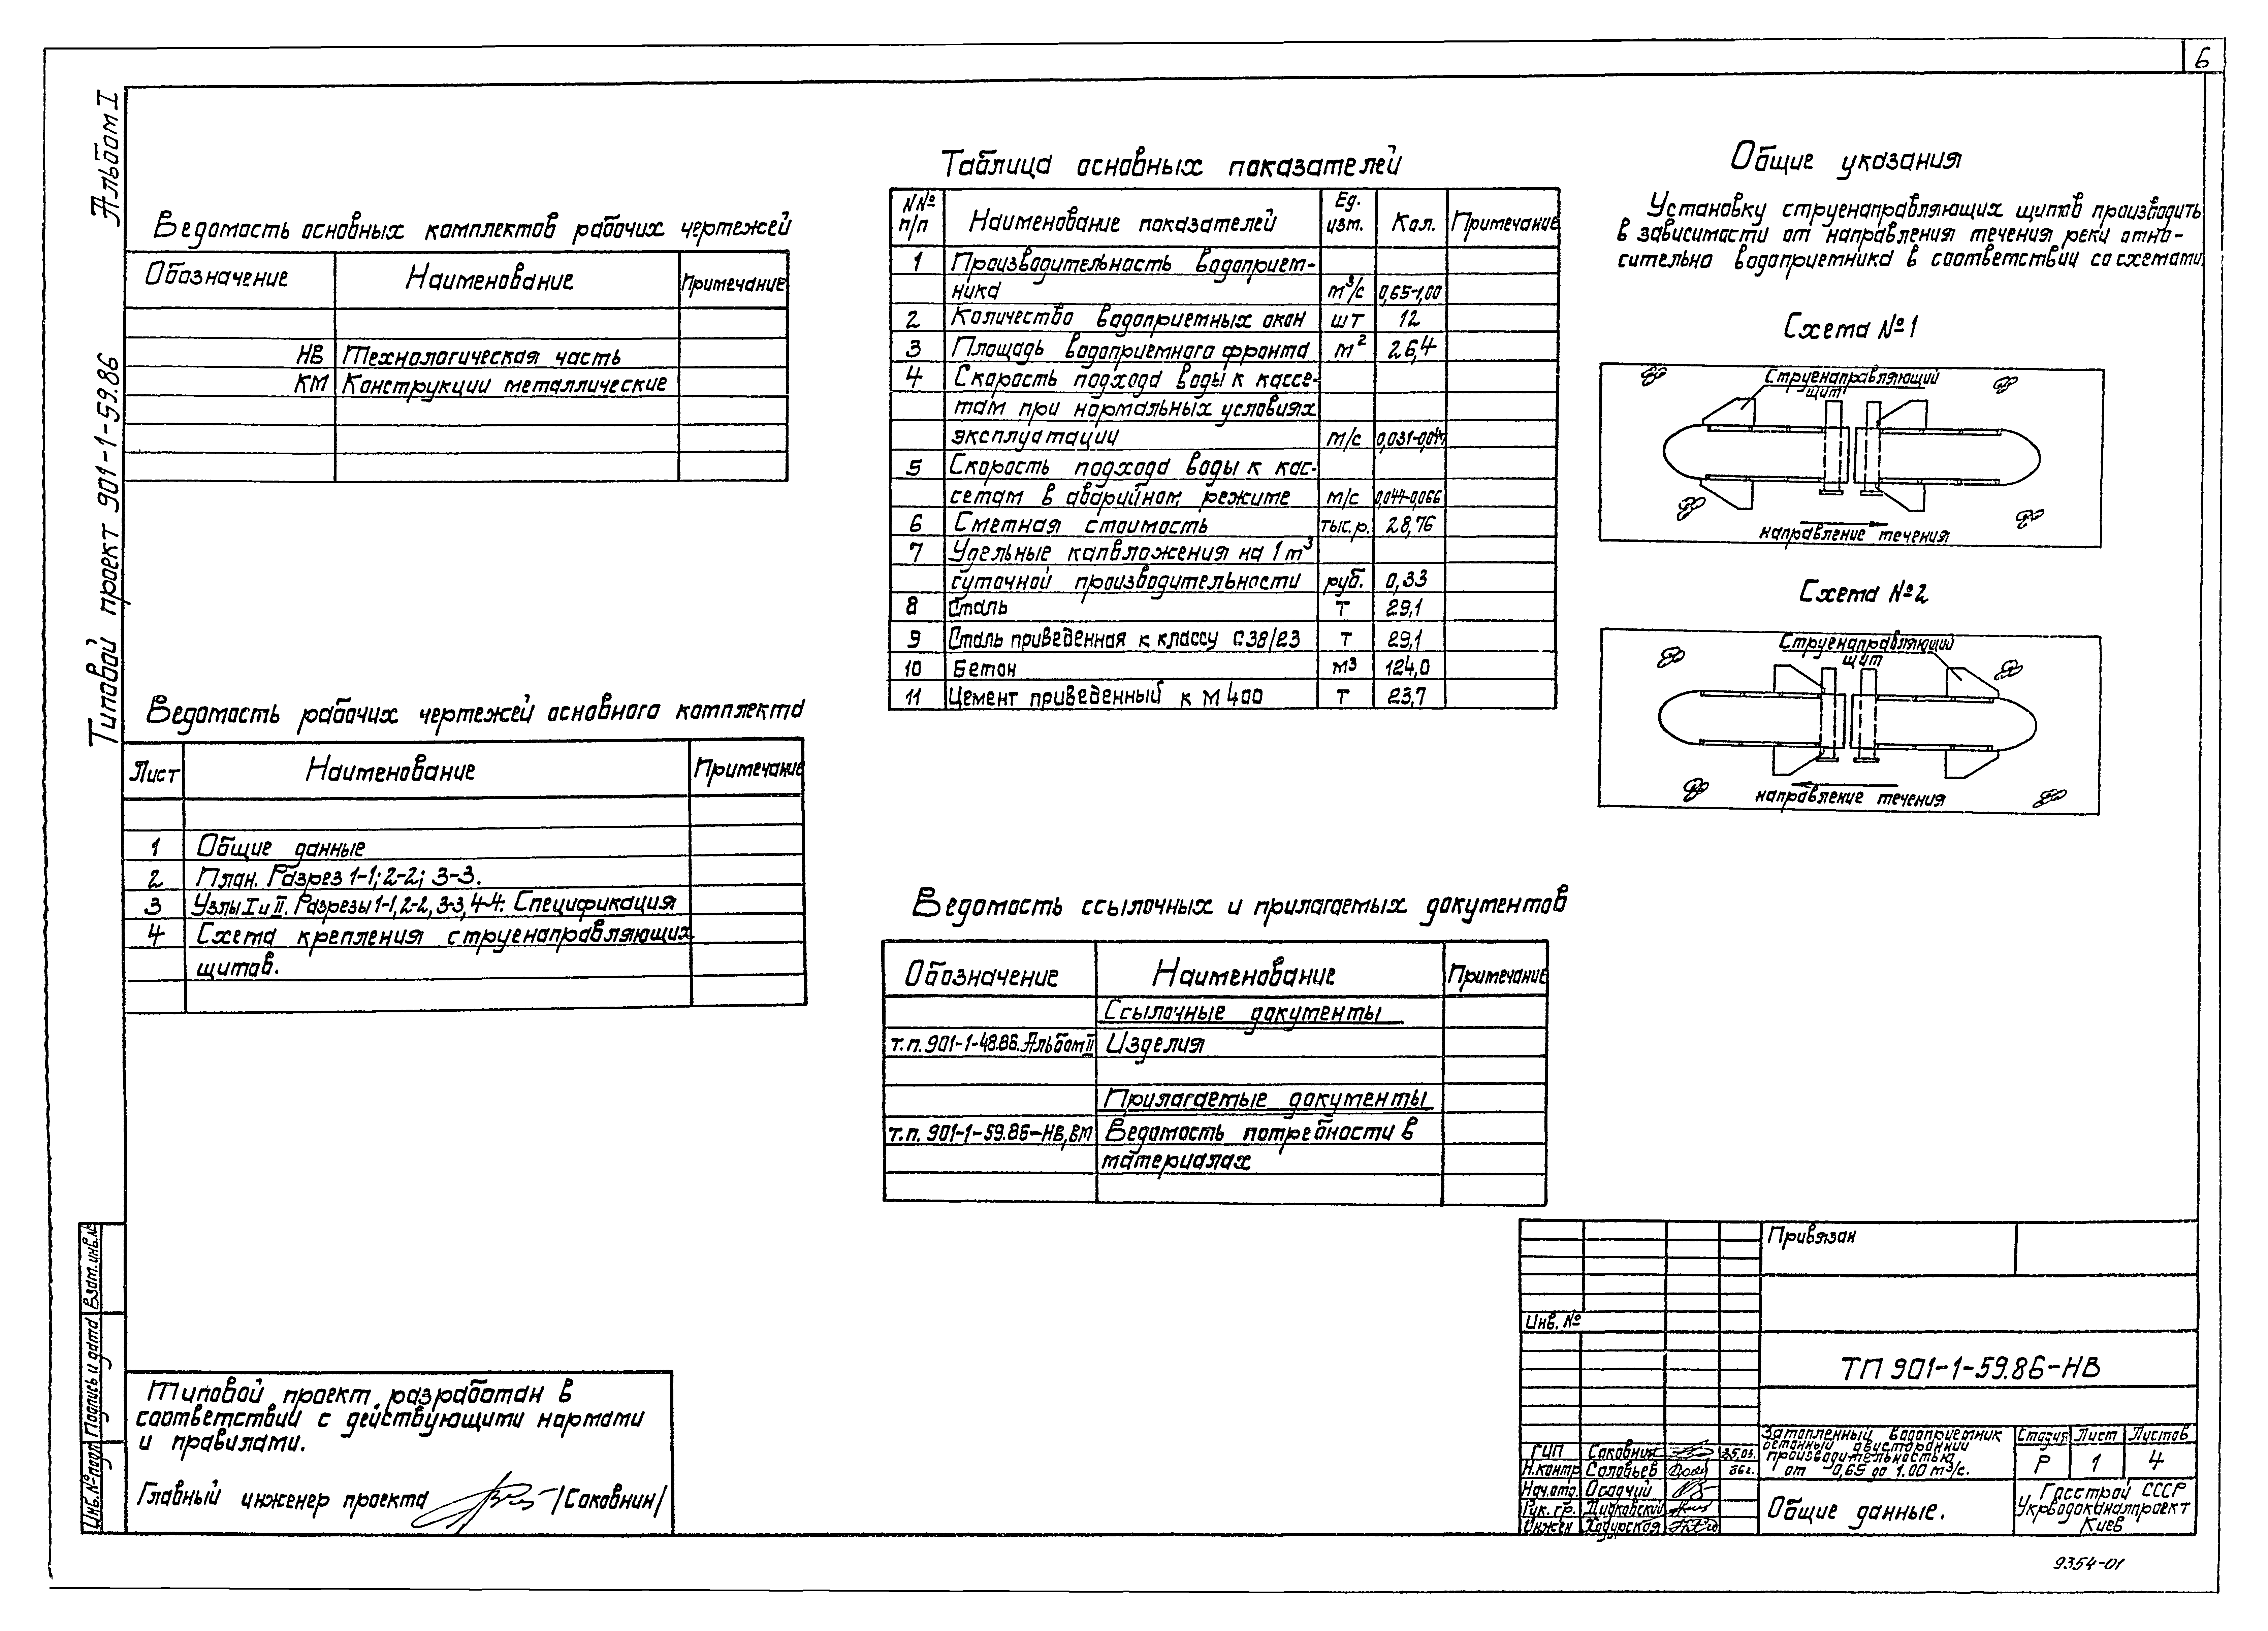 6
Альбом I
Типовой проект 901-1-59.86
Ведомость основных комплектов рабочих чертежей
Обозначение Наименование Примечание
НВ Технологическая часть
КМ Конструкции металлические
Ведомость рабочих чертежей основного комплекта
Лист Наименование Примечание
1 Общие данные
2 План. Разрез 1-1; 2-2; 3-3.
3 Узлы I и II. Разрезы 1-1, 2-2, 3-3, 4-4. Спецификация
4 Схема крепления струенаправляющих
щитов.
Таблица основных показателей
NN№ п/п Наименование показателей Ед. изм. Кол. Примечание
1 Производительность водоприем-
ника м³/с 0,65-1,00
2 Количество водоприемных окон шт 12
3 Площадь водоприемного фронта м² 26,4
4 Скорость подхода воды к кассе-
там при нормальных условиях
эксплуатации м/с 0,031-0,044
5 Скорость подхода воды к кас-
сетам в аварийном режиме м/с 0,044-0,066
6 Сметная стоимость тыс.р. 28,76
7 Удельные капвложения на 1 м³
суточной производительности руб. 0,33
8 Сталь т 29,1
9 Сталь приведенная к классу С38/23 т 29,1
10 Бетон м3 124,0
11 Цемент приведенный к М400 т 23,7
Ведомость ссылочных и прилагаемых документов
Обозначение Наименование Примечание
Ссылочные документы
т.п. 901-1-48.86. Альбом II Изделия
Прилагаемые документы
т.п. 901-1-59.86-НВ, ВМ Ведомость потребности в
материалах
Общие указания
Установку струенаправляющих щитов производить
в зависимости от направления течения реки отно-
сительно водоприемника в соответствии со схемами
Схема №1
Струенаправляющий
щит
направление течения
Схема №2
Струенаправляющий
щит
направление течения
Типовой проект разработан в
соответствии с действующими нормами
и правилами.
Главный инженер проекта /Саковнин/
Взам. инв. №
Подпись и дата
Инв. № подл
Привязан
Инв. №
ТП 901-1-59.86-НВ
ГИП Саковнин 25.03.
Н.контр Соловьев 86г.
Нач.отд. Осадчий
Рук. гр.
Инжен
Затопленный водоприемник
бетонный двусторонний
производительностью
от 0,65 до 1.00 м³/с.
Стадия Лист Листов
Р 1 4
Общие данные.
Госстрой СССР
Укрводоканалпроект
Киев
9354-01